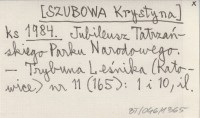 x
[SZUBOWA Krystyna]
ks 1984. Jubileusz Tatrzań-
skiego Parku Narodowego.
— Trybuna Leśnika (Kato-
wice) nr 11 (165): 1 i 10, il.